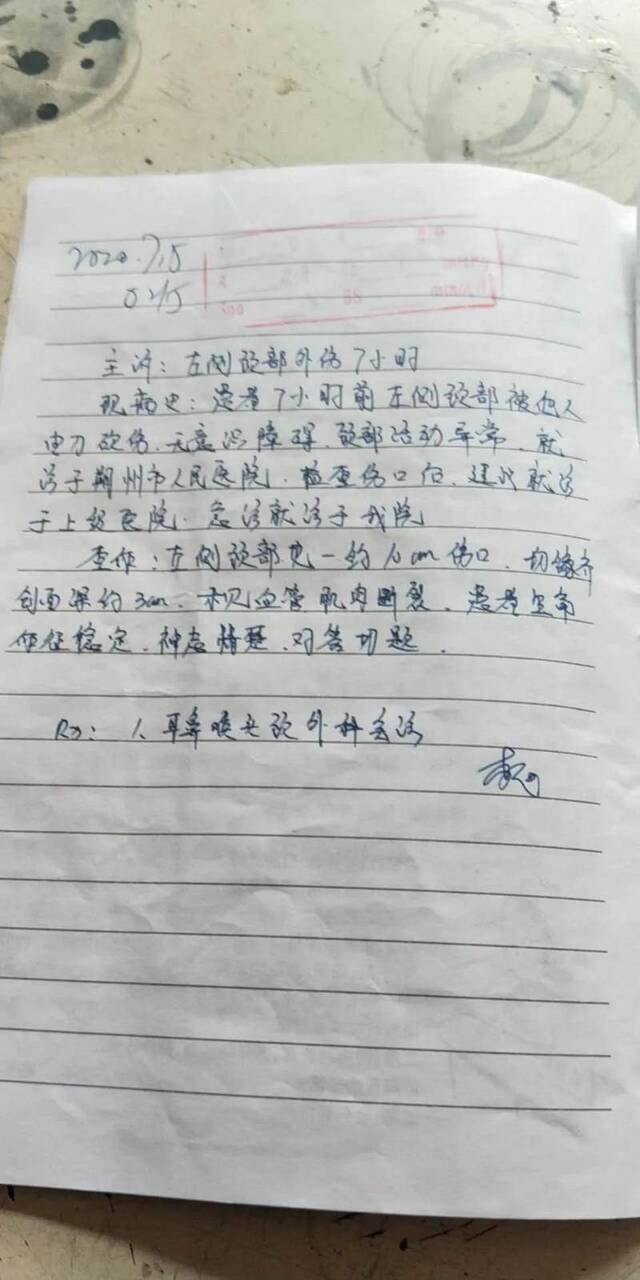 2020.7.15
0215
主诉：左侧颈部外伤7小时
现病史：患者7小时前左侧颈部被他人
由刀砍伤、无意识障碍、颈部活动异常、就
诊于朔州市人民医院、检查伤口后、建议就诊
于上级医院、急诊就诊于我院
查体：左侧颈部见一约10cm伤口、切缘齐
创面深约3cm、血管肌肉断裂、患者生命
体征稳定、神志清楚、对答切题.
Rx: 1、耳鼻喉头颈外科会诊